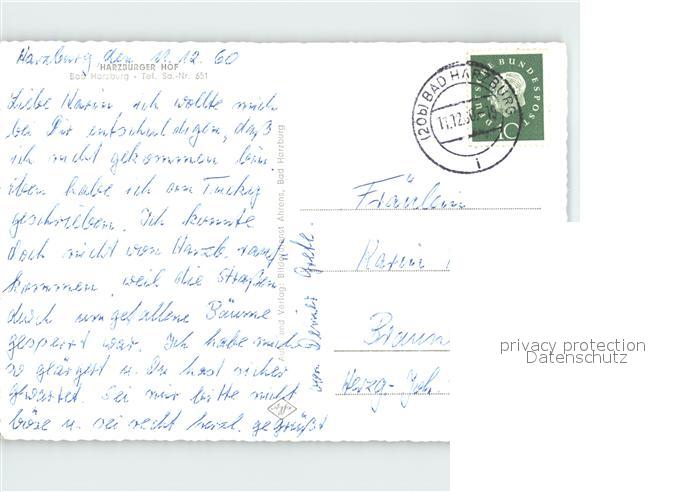 Harzburg den 11.12.60
HARZBURGER HOF
Bad Harzburg - Tel. Sa.-Nr. 651
Liebe Karin ich wollte mich
bei Dir entschuldigen, daß
ich nicht gekommen bin
eben habe ich an
geschrieben. Ich konnte
doch nicht von Harzb. rauf
kommen, weil die Straßen
durch umgefallene Bäume
gesperrt war. Ich habe mich
so geärgert u. Du hast sicher
gewartet. Sei mir bitte nicht
böse u. sei recht herzl. gegrüßt
von Deiner Grete.
Verlag: Ahrens, Bad Harzburg
Agfa
(20b) BAD HARZBURG
11.12.60
i
DEUTSCHE BUNDESPOST
Fräulein
Karin
Braun
Herzog-Joh
privacy protection
Datenschutz